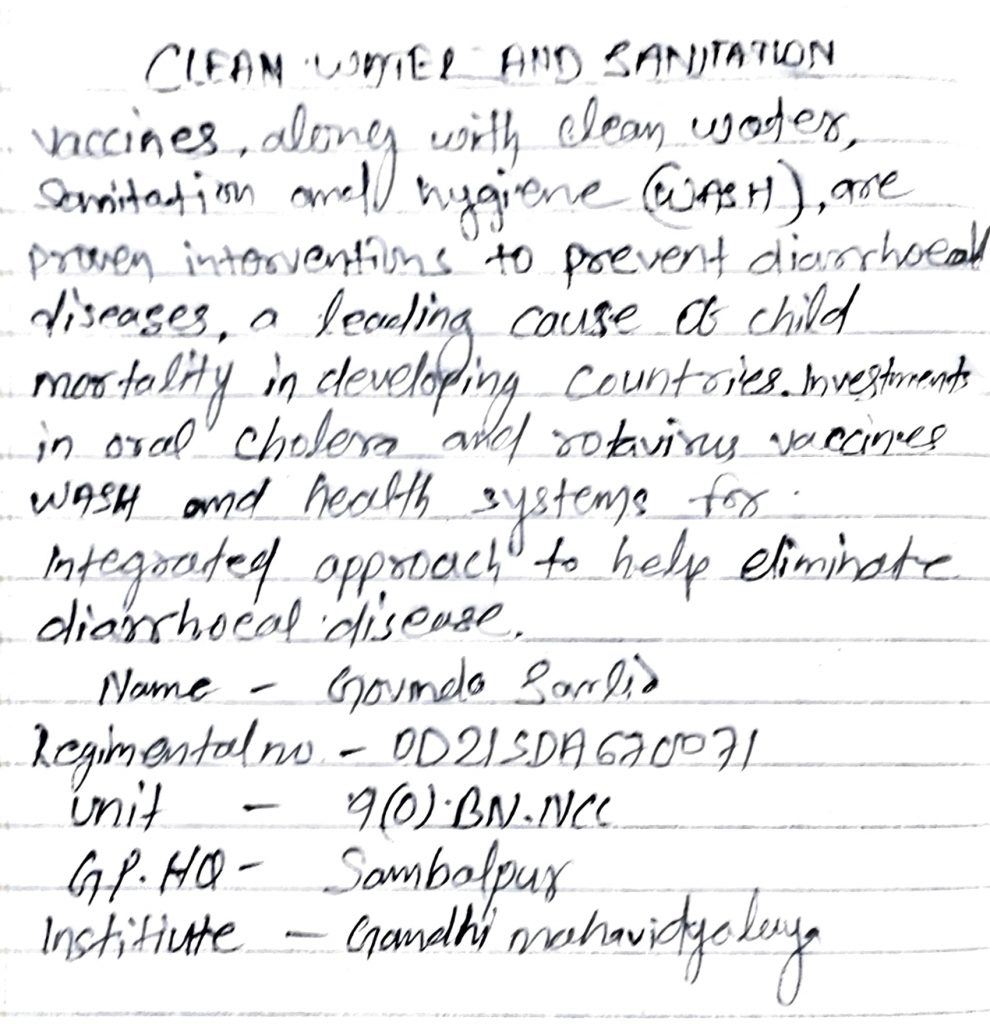 CLEAN WATER AND SANITATION
vaccines, along with clean water,
Sanitation and hygiene (WASH), are
proven interventions to prevent diarrhoeal
diseases, a leading cause of child
mortality in developing countries. Investments
in oral cholera and rotavirus vaccines
WASH and health systems for
Integrated approach to help eliminate
diarrhoeal disease.
Name -
Regimental no. - OD21SDA670071
unit - 9(O).BN.NCC
GP.HQ - Sambalpur
Institiute - Gandhi mahavidyalaya